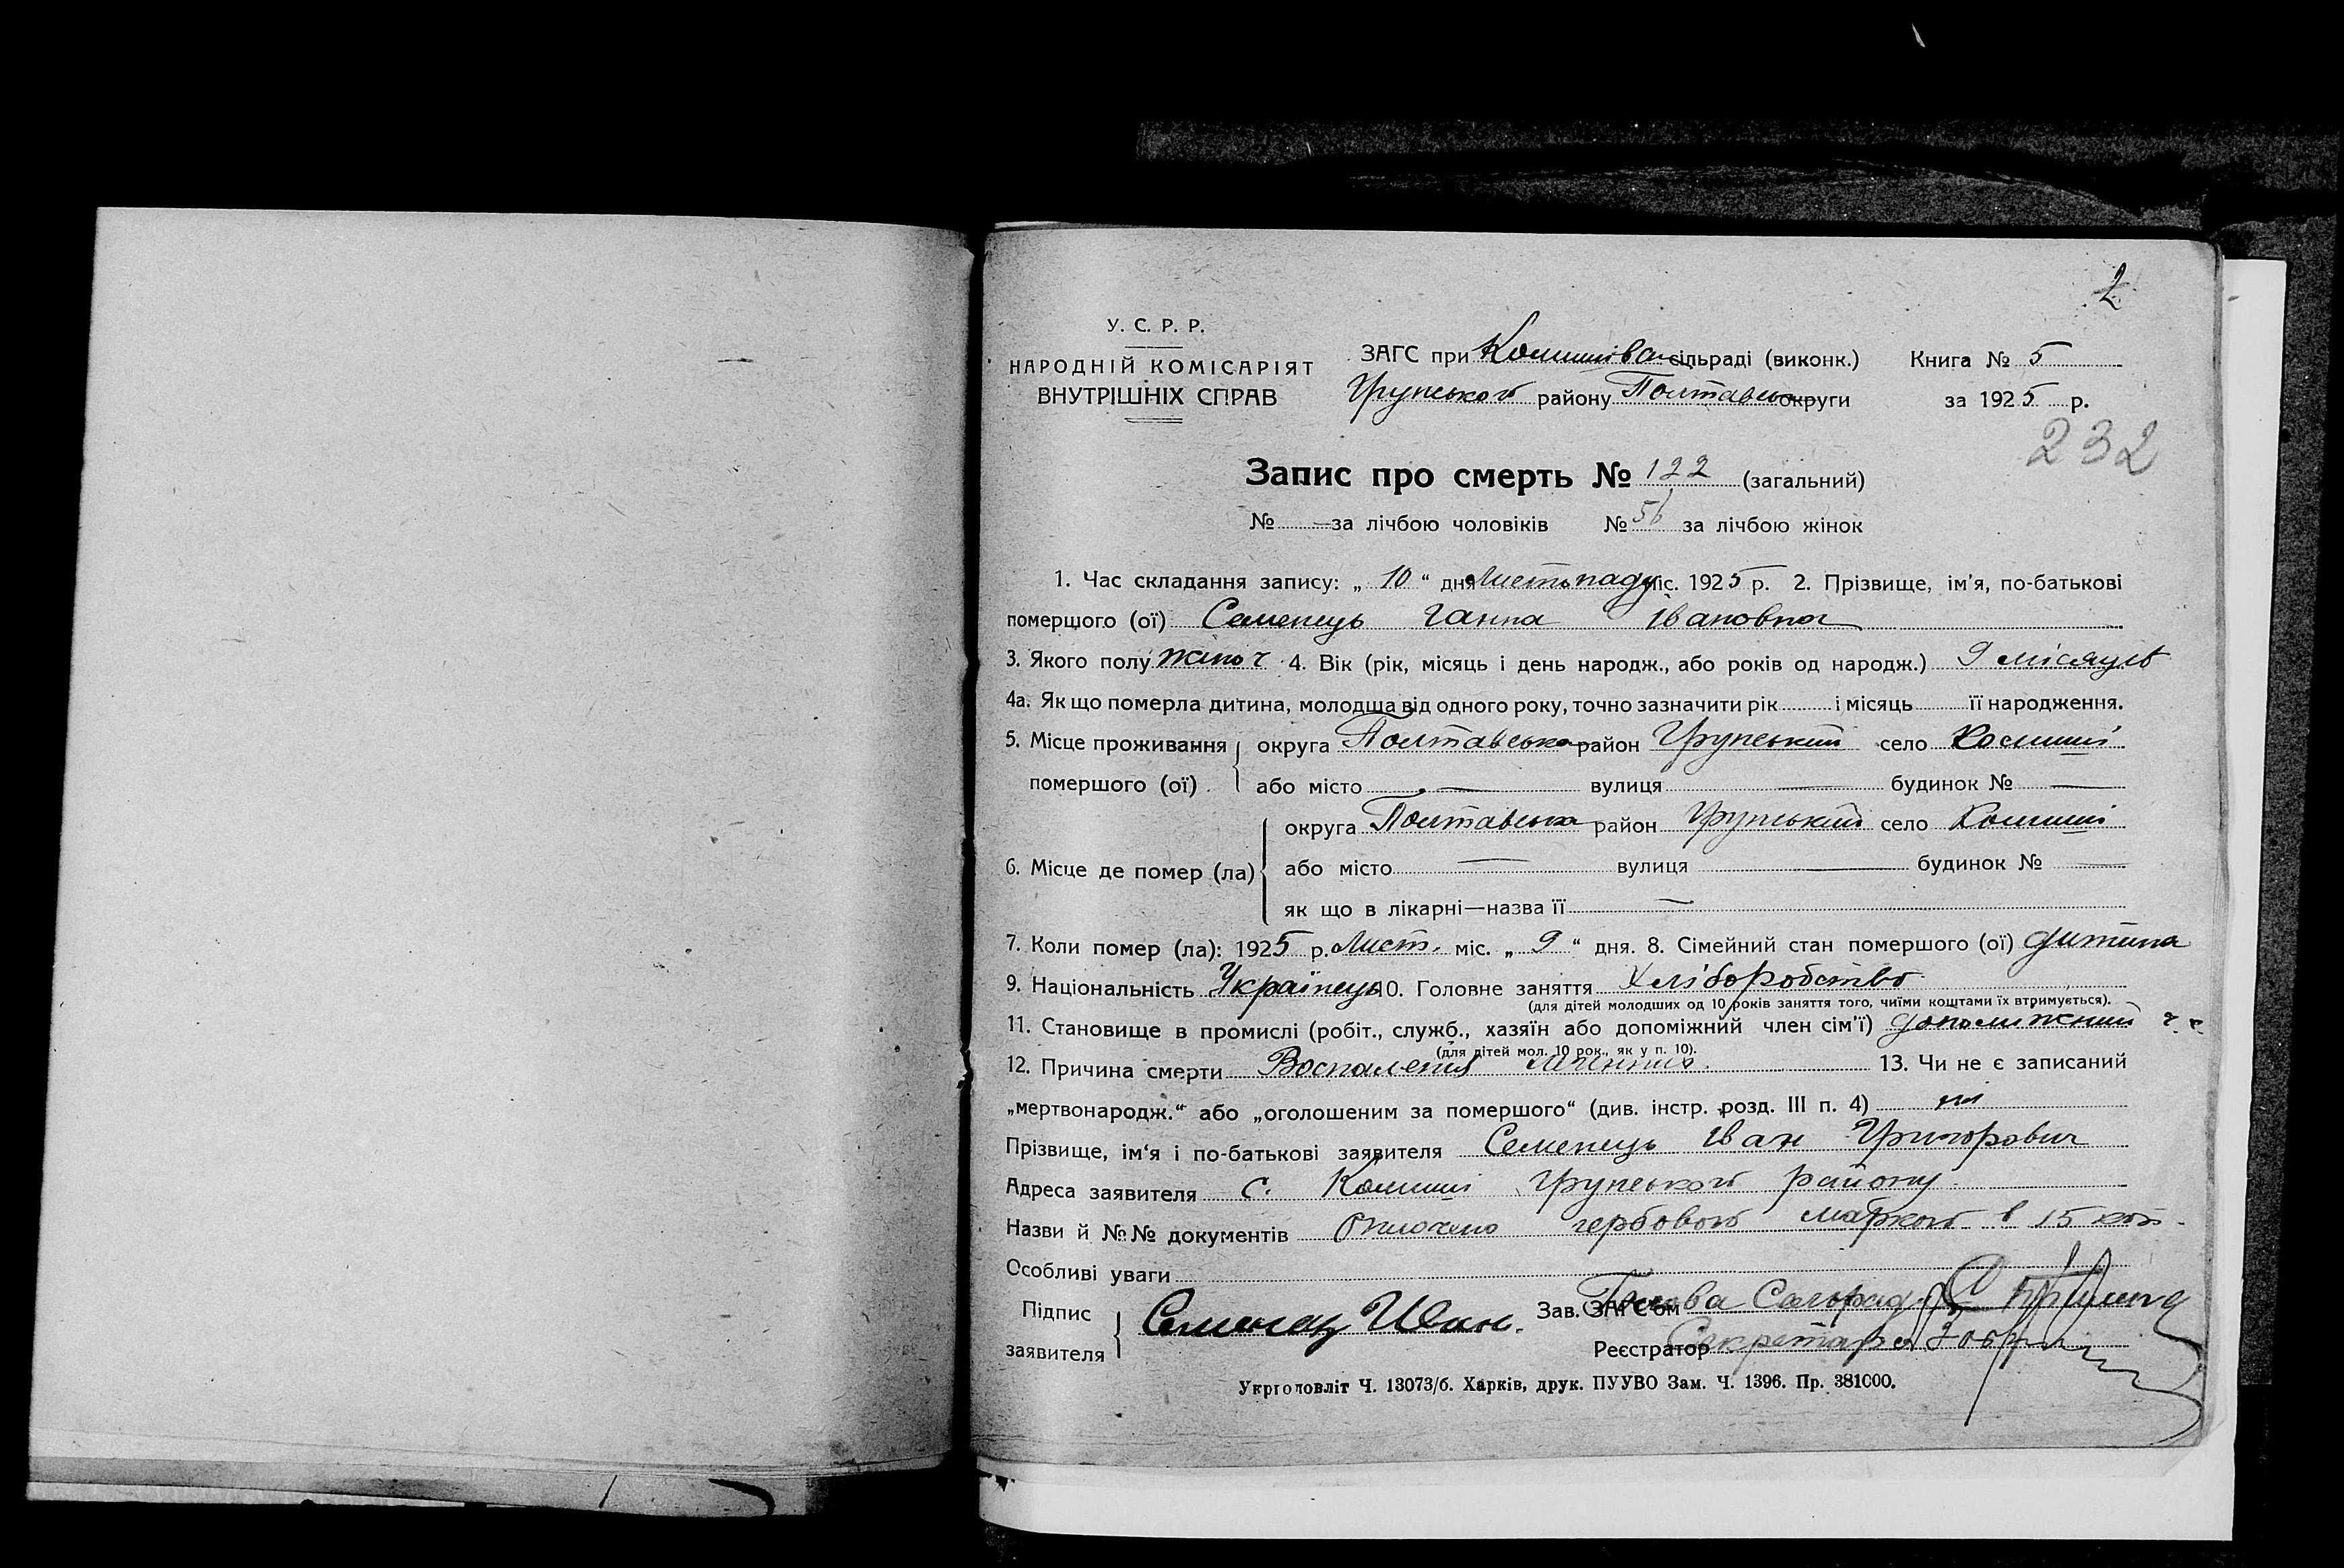 2
У. С. Р. Р.
НАРОДНІЙ КОМІСАРІЯТ
ВНУТРІШНІХ СПРАВ
ЗАГС при сільраді (виконк.) Книга № 5
Грунського району Полтавської округи за 1925 р.
232
Запис про смерть № 122 (загальний)
№ — за лічбою чоловіків № 56 за лічбою жінок
1. Час складання запису: „ 10 “ дня Листопаду міс. 1925 р. 2. Прізвище, ім'я, по-батькові
померщого (ої) Семенець Ганна Івановна
3. Якого полу жіноч 4. Вік (рік, місяць і день народж., або років од народж.) 9 місяців
4а. Як що померла дитина, молодша від одного року, точно зазначити рік і місяць її народження.
5. Місце проживання округа Полтавська район Грунський село Комиші
помершого (ої) або місто — вулиця — будинок № —
округа Полтавська район Грунський село Комиші
6. Місце де помер (ла) або місто — вулиця — будинок № —
як що в лікарні—назва її —
7. Коли помер (ла): 1925 р. Лист. міс. „ 9 “ дня. 8. Сімейний стан помершого (ої) дитина
9. Національність Українець 10. Головне заняття Хліборобство
(для дітей молодших од 10 років заняття того, чиїми коштами їх втримується).
11. Становище в промислі (робіт., служб., хазяїн або допоміжний член сім'ї) допоміжний ч. с.
(для дітей мол. 10 рок., як у п. 10).
12. Причина смерти Воспаленія 13. Чи не є записаний
„мертвонародж.“ або „оголошеним за помершого“ (див. інстр. розд. III п. 4) ні
Прізвище, ім'я і по-батькові заявителя Семенець Іван Григорович
Адреса заявителя с. Комиші Грунського району
Назви й №№ документів Оплочено гербовою маркою в 15 коп.
Особливі уваги
Підпис заявителя Семенец Иван. Зав. ЗАГС'ом Голова Сільради
Реєстратор Секретарь
Укрголовліт Ч. 13073/б. Харків, друк. ПУУВО Зам. Ч. 1396. Пр. 381000.